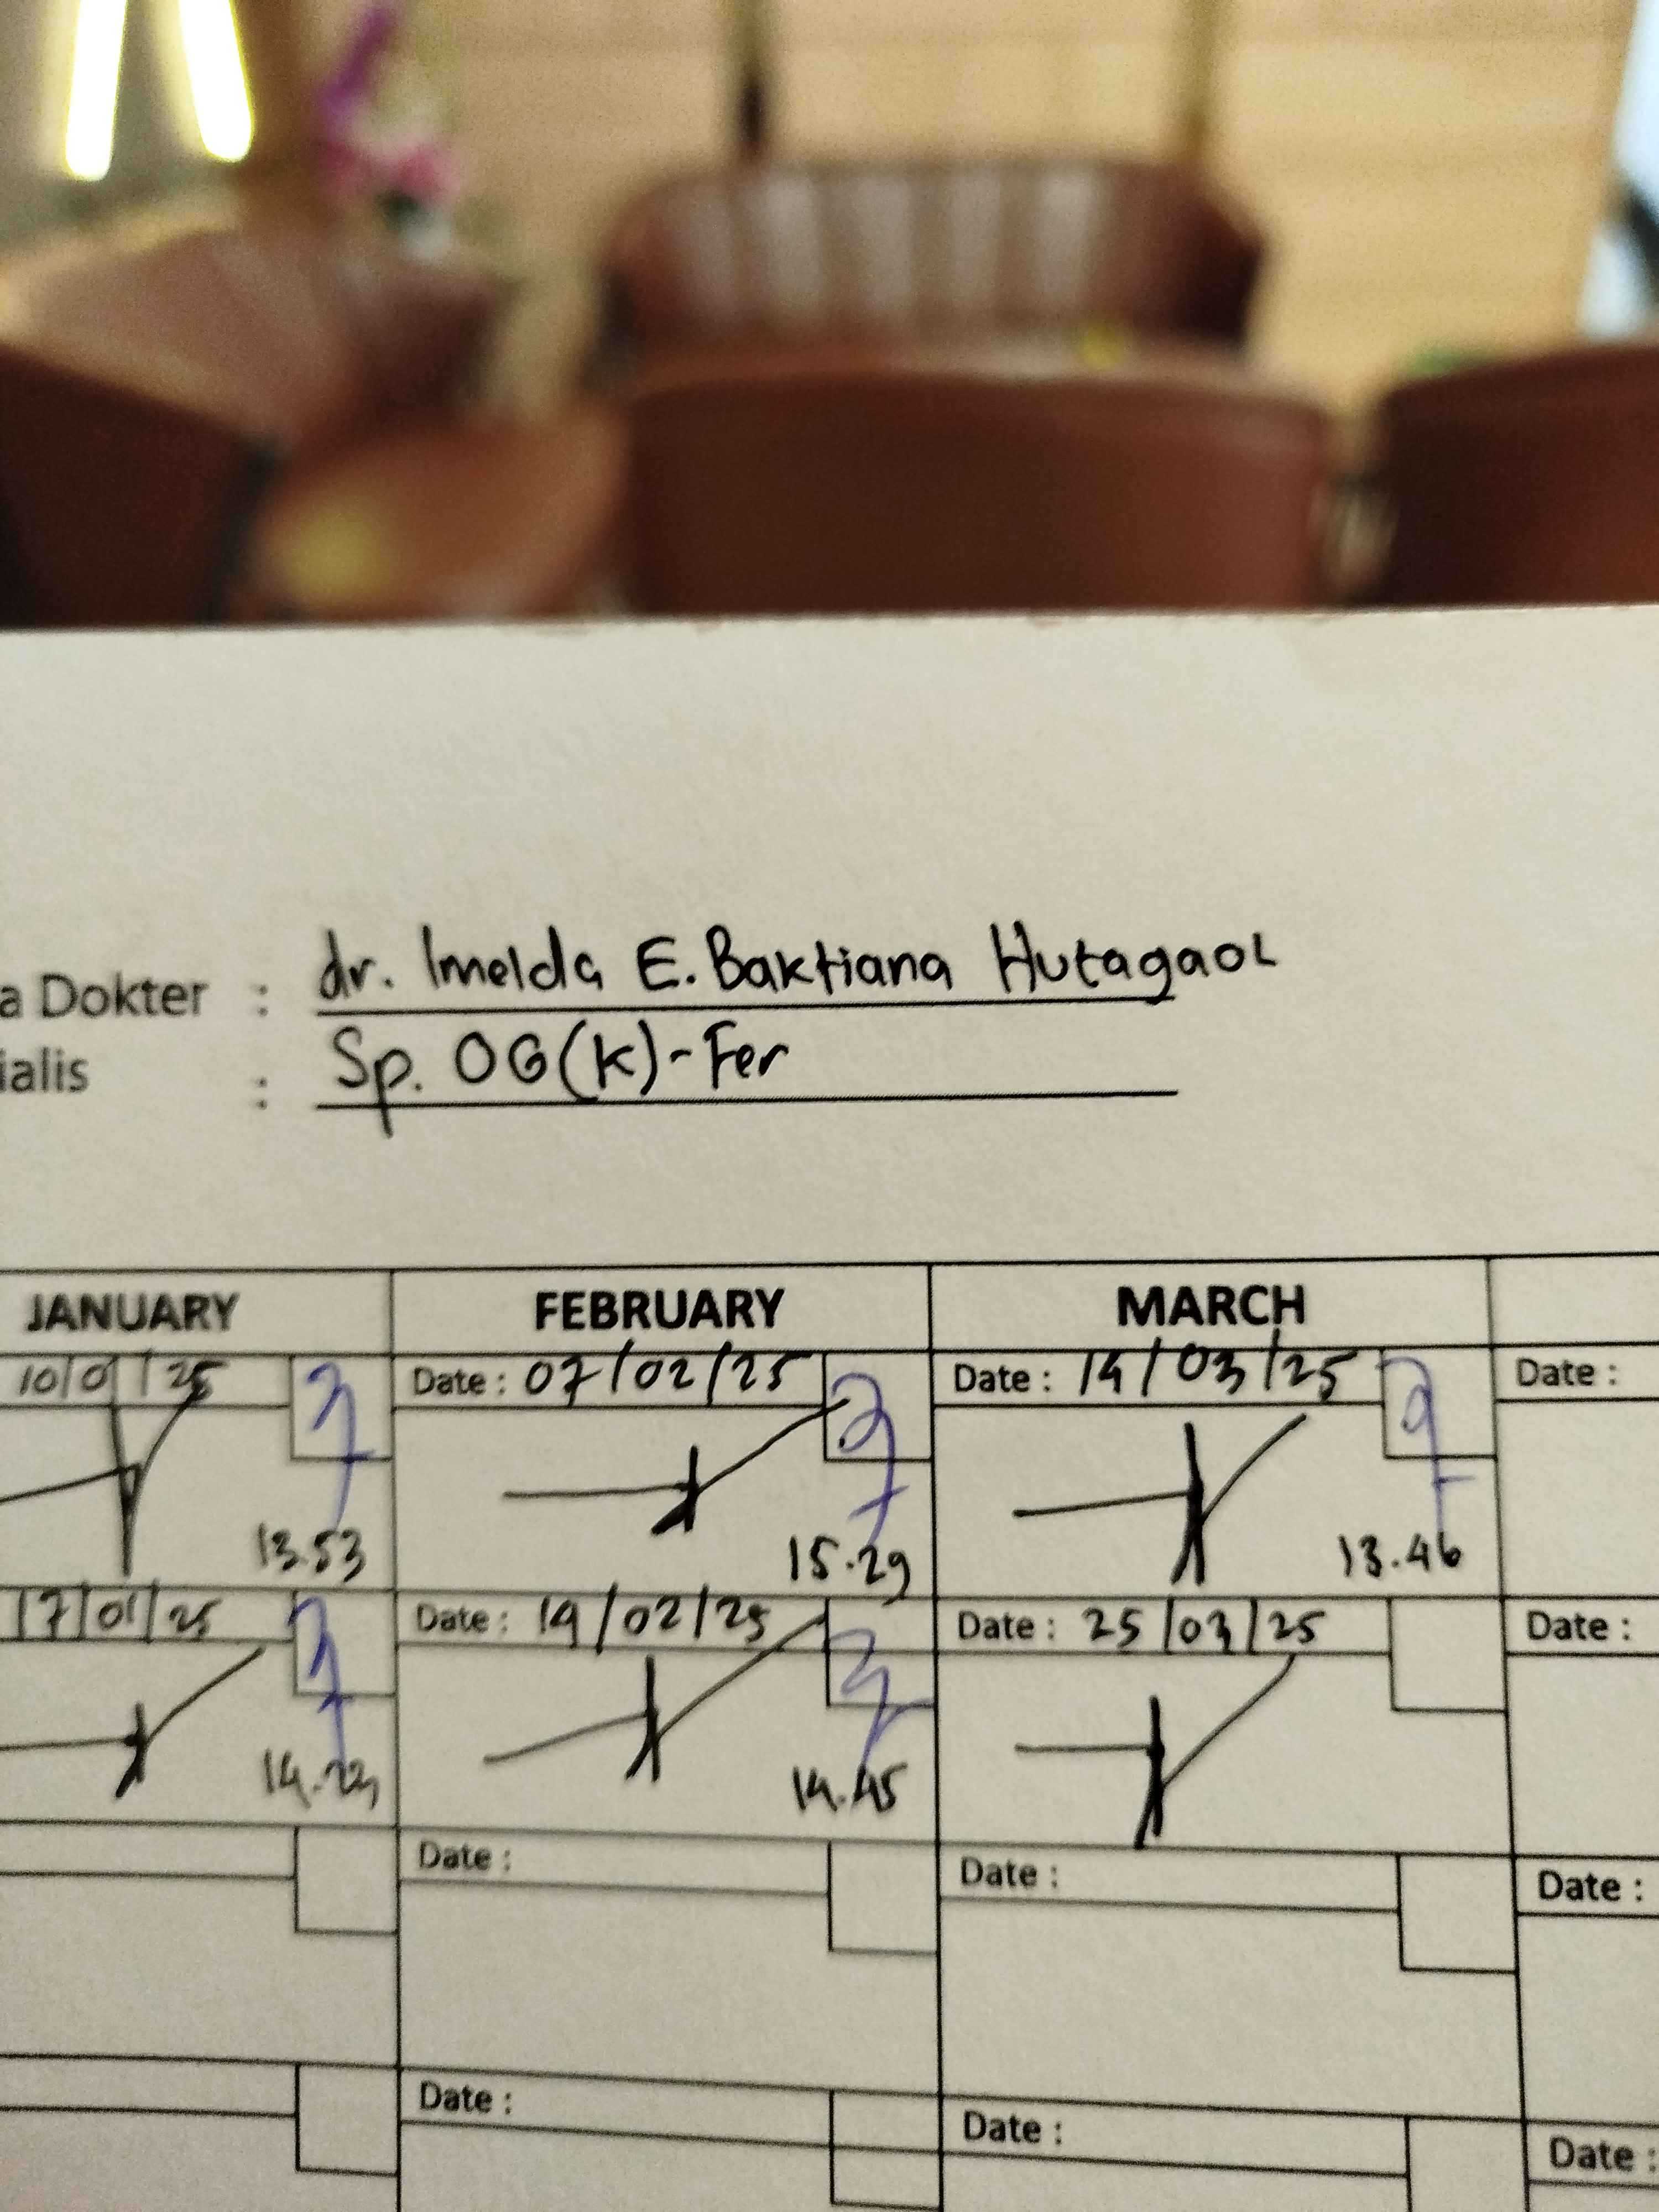 a Dokter : dr. Imelda E. Baktiana Hutagaol
ialis : Sp. OG(K)-Fer
JANUARY FEBRUARY MARCH
10/01/25 Date : 07/02/25 Date : 14/03/25 Date :
13.53 15.29 13.46
17/01/25 Date : 19/02/25 Date : 25/03/25 Date :
14.45
Date : Date : Date :
Date : Date : Date :